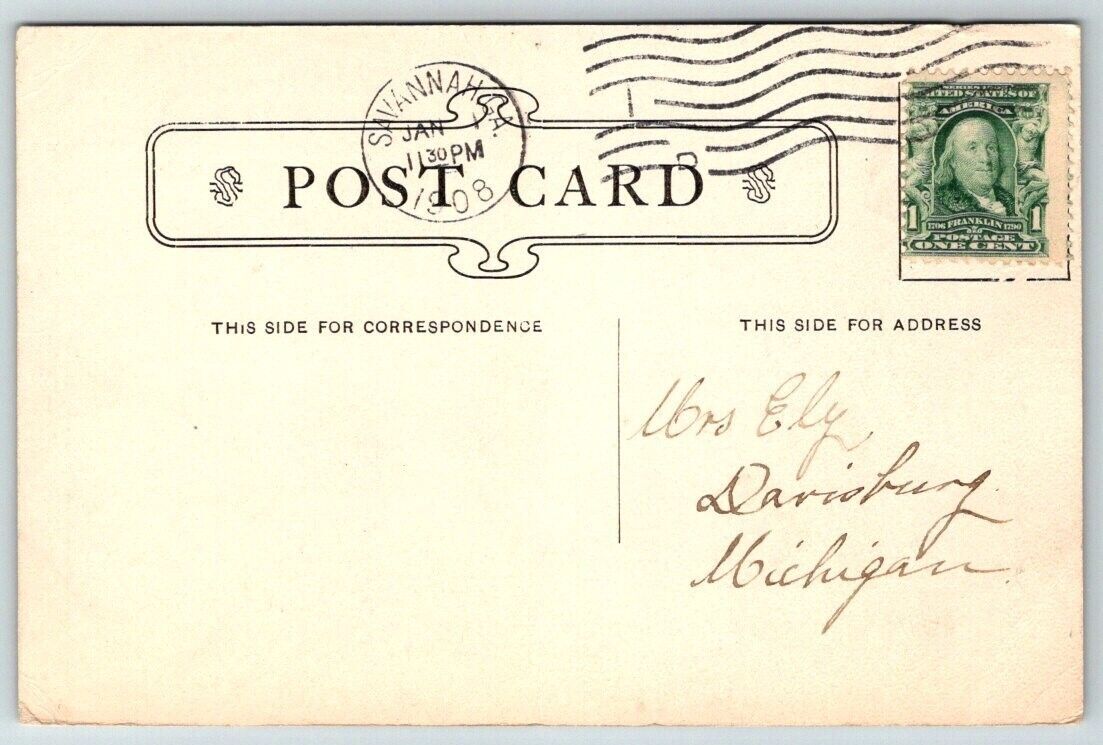 SAVANNAH GA.
JAN 1
11 30 PM
1908
SERIES 1902
UNITED STATES OF
AMERICA
1706 FRANKLIN 1790
1 1
POSTAGE
ONE CENT
POST CARD
THIS SIDE FOR CORRESPONDENCE
THIS SIDE FOR ADDRESS
Mrs Ely
Davisburg
Michigan